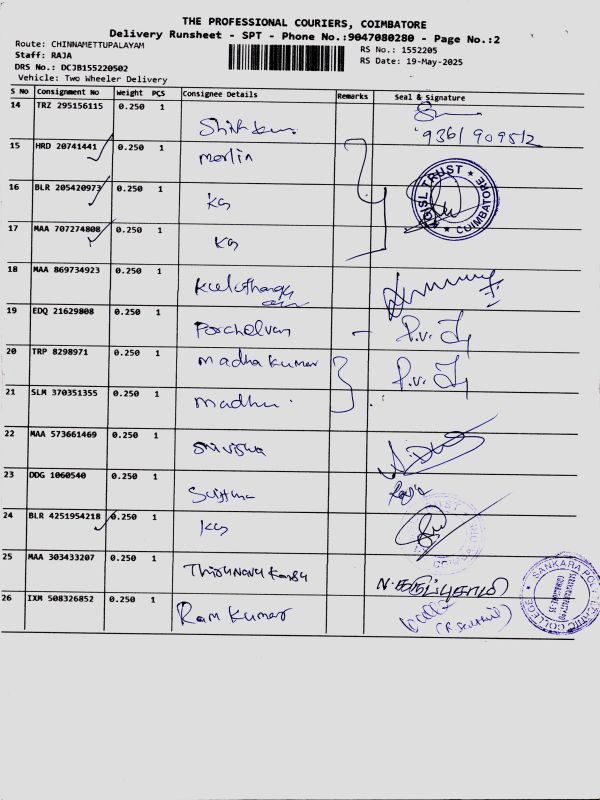 THE PROFESSIONAL COURIERS, COIMBATORE
Delivery Runsheet - SPT - Phone No.:9047080280 - Page No.:2
Route: CHINNAMETTUPALAYAM
RS No.: 1552205
Staff: RAJA
RS Date: 19-May-2025
DRS No.: DCJB155220502
Vehicle: Two Wheeler Delivery
S No Consignment No Weight PCS Consignee Details Remarks Seal & Signature
14 TRZ 295156115 0.250 1
9361909512
15 HRD 20741441 0.250 1 merlin
16 BLR 205420973 0.250 1 kg
TRUST ★ COIMBATORE ★
17 MAA 707274808 0.250 1 kg
18 MAA 869734923 0.250 1
19 EDQ 21629808 0.250 1 Porchelvan P.V.
20 TRP 8298971 0.250 1 madha kumar P.V.
21 SLM 370351355 0.250 1 madhu
22 MAA 573661469 0.250 1
23 DDG 1060540 0.250 1 Raja
24 BLR 4251954218 0.250 1 kg
25 MAA 303433207 0.250 1
26 IXM 508326852 0.250 1 Ram Kumar
SANKARA POLYTECHNIC COLLEGE